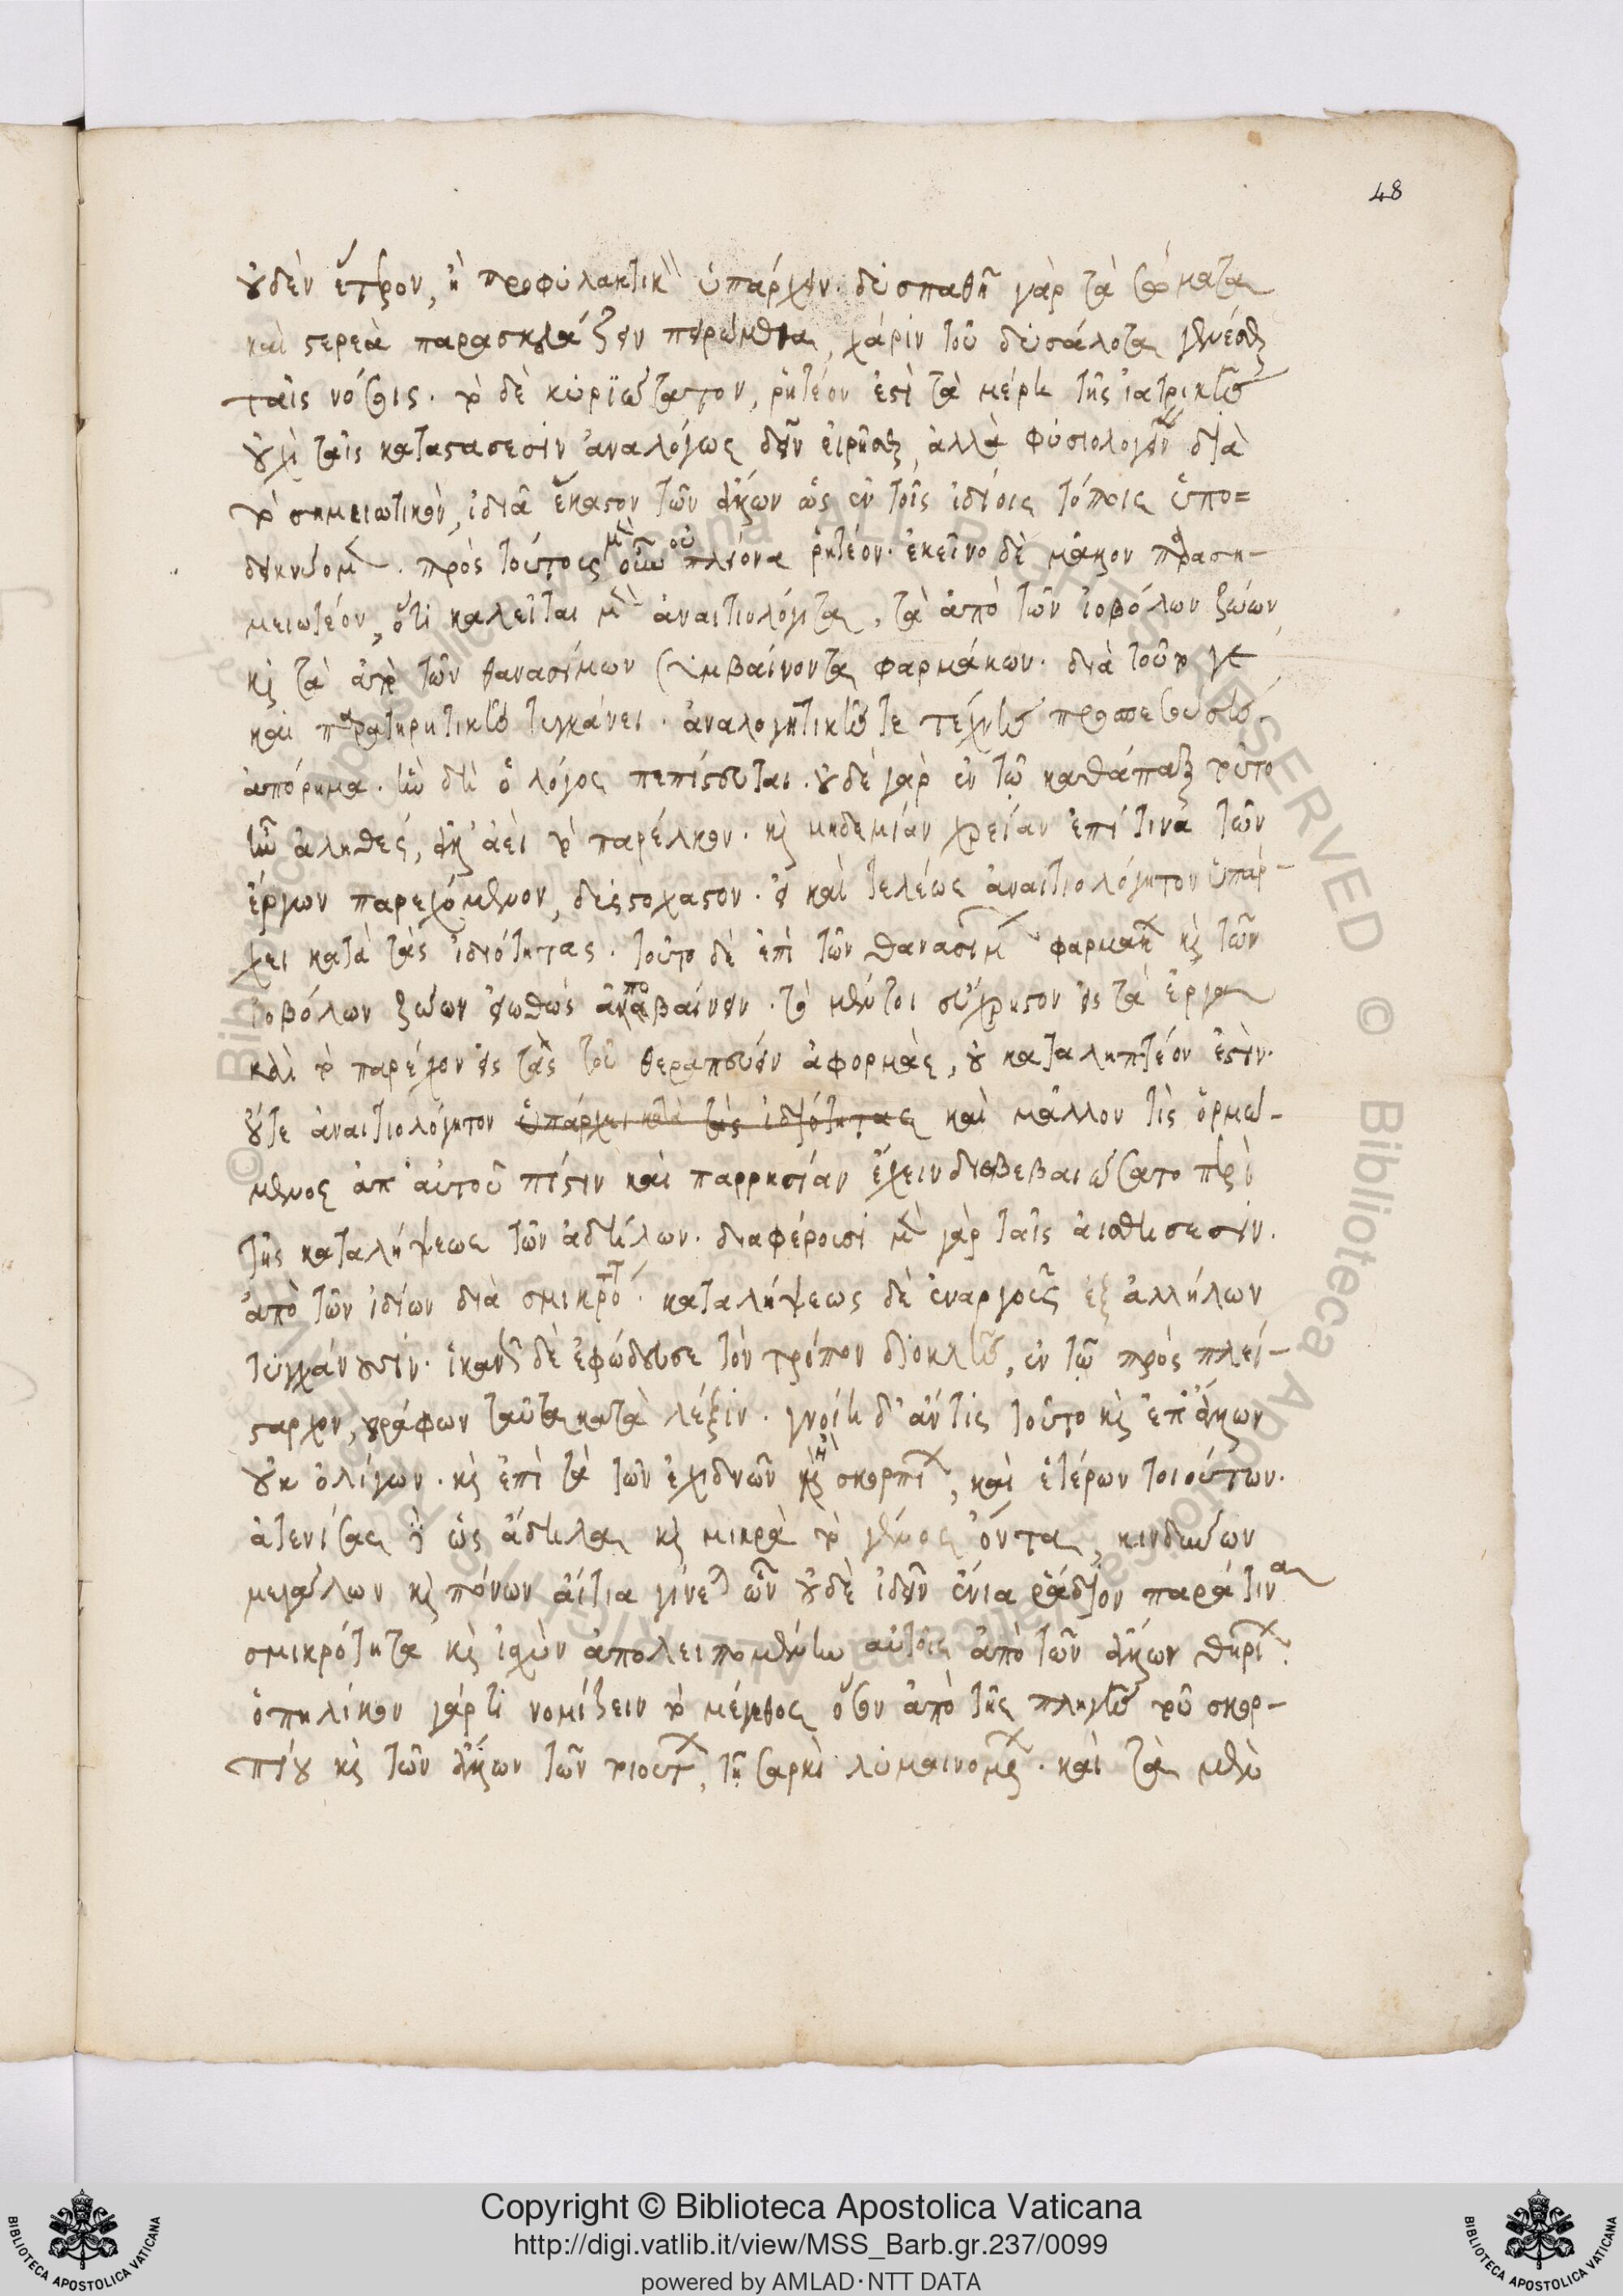 48
οὐδὲν ἕτερον, ἢ προφυλακτικὴν ὑπάρχειν· δυσπαθῆ γὰρ τὰ σώματα
καὶ στερεὰ παρασκευάζειν πειρώμεθα, χάριν τοῦ δυσάλοτα γενέσθαι
ταῖς νόσοις. τὸ δὲ κυριώτατον, ῥητέον ἐστὶ τὰ μέρη τῆς ἰατρικῆς
οὐχὶ ταῖς καταστάσεσιν ἀναλόγως δεῖν εἰρῆσθαι, ἀλλὰ φυσιολογεῖν διὰ
τὸ σημειωτικὸν, ἰδίᾳ ἕκαστον τῶν ἄλλων ὡς ἐν τοῖς ἰδίοις τόποις ὑπο=
δείκνυομεν. πρὸς τούτοις μὲν οὖν οὐ πλείονα ῥητέον. ἐκεῖνο δὲ μᾶλλον παραση-
μειωτέον, ὅτι καλεῖται μὲν ἀναιτιολόγητα, τὰ ἀπὸ τῶν ἰοβόλων ζώων
καὶ τὰ ἀπὸ τῶν θανασίμων συμβαίνοντα φαρμάκων. διὰ τοῦτό γε
καὶ παρατηρητικῆς τυγχάνει. ἀναλογητικῆς τε τέχνης
ἀπόρημα. ὁ λόγος πεπίστευται. οὐδὲ γὰρ ἐν τῷ καθάπαξ τοῦτο
ἦν ἀληθές, ἀλλ' ἀεὶ τὸ παρέλκον. καὶ μηδεμίαν χρείαν ἐπί τινα τῶν
ἔργων παρεχόμενον, δύσστοχαστον. ὃ καὶ τελέως ἀναιτιολόγητον ὑπάρ-
χει κατὰ τὰς ἰδιότητας. τοῦτο δὲ ἐπὶ τῶν θανασίμων φαρμάκων καὶ τῶν
ἰοβόλων ζώων εἰωθὼς ἀποβαίνειν. τὸ μέντοι εὔχρηστον εἰς τὰ ἔργα
καὶ τὸ παρέχον εἰς τὰς τοῦ θεραπεύειν ἀφορμὰς, οὐ καταληπτέον ἐστιν.
οὔτε ἀναιτιολόγητον ὑπάρχει κατὰ τὰς ἰδιότητας καὶ μᾶλλον τὶς ὁρμώ-
μενος ἀπ' αὐτοῦ πίστιν καὶ παρρησίαν ἔχειν διαβεβαιώσατο περὶ
τῆς καταλήψεως τῶν ἀδήλων. διαφέρουσι μὲν γὰρ ταῖς αἰσθήσεσιν.
ἀπὸ τῶν ἰδίων διὰ σμικρότητα. καταλήψεως δὲ ἐναργοῦς ἐξ ἀλλήλων
τυγχάνουσιν. ἱκανῶς δὲ ἐφώδευσε τὸν τρόπον διοκλῆς, ἐν τῷ πρὸς πλεί-
σταρχον, γράφων ταῦτα κατὰ λέξιν. γνοίη δ' ἄν τις τοῦτο καὶ ἐπ' ἄλλων
οὐκ ὀλίγων. καὶ ἐπὶ τὰ τῶν ἐχιδνῶν καὶ σκορπίων, καὶ ἑτέρων τοιούτων.
ἀτενίσας ὡς ἄδηλα καὶ μικρὰ τὸ γένος ὄντα, κινδύνων
μεγάλων καὶ πόνων αἴτια γίνεται ὧν οὐδὲ ἰδεῖν ἔνια ῥάδιον παρά τινα
σμικρότητα καὶ ἰσχὺν ἀπολειπομένην αὐτοῖς ἀπὸ τῶν ἄλλων θηρίων.
ὁπηλίκον γάρ τι νομίζειν τὸ μέγεθος ὅσον ἀπὸ τῆς πληγῆς τοῦ σκορ-
πίου καὶ τῶν ἄλλων τῶν τοιούτων, τῇ σαρκὶ λυμαινομένων. καὶ τὰ μὲν
Copyright © Biblioteca Apostolica Vaticana
http://digi.vatlib.it/view/MSS_Barb.gr.237/0099
powered by AMLAD·NTT DATA
BIBLIOTECA APOSTOLICA VATICANA
BIBLIOTECA APOSTOLICA VATICANA